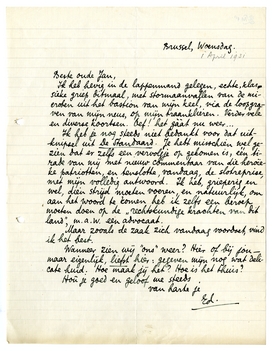 Brussel, Woensdag.
1 April 1931
Beste oude Jan,
Ik heb hevig in de lappenmand gelegen, echte, klas-
sieke griep ditmaal, met stormaanvallen van de mi-
croben uit het bastion van mijn keel, via de loopgra-
ven van mijn neus, op mijn
en diverse koortsen. Oef! het gaat nu wee,...
Ik heb je nog steeds niet bedankt voor dat uit-
knipsel uit De Standaard. Je hebt misschien wel ge-
zien dat er zelfs een vervolgje op gekomen is, en be-
van mij met nieuwe commentaar van die heroïe-
ke patriotten, en tenslotte, vandaag, de slotreprise,
met mijn volledig antwoord. Ik heb, gruwend en
wel, den strijd moeten voeren, en natuurlijk, om
aan het woord te komen heb ik zelfs een beroep
moeten doen op de "rechtskundige krachten van dit
land", m.a.w. een advocaat.
Maar zooals de zaak zich vandaag voordoet vind
ik het best.
Wanneer zien wij "ons" weer? Hier, of bij jou-
maar eigenlijk, liefst hier, gegeven mijn nog wat deli-
cate huid. Hoe maak jij het? Hoe is het thuis?
Houd je goed en geloof me steeds
van harte je
Ed.